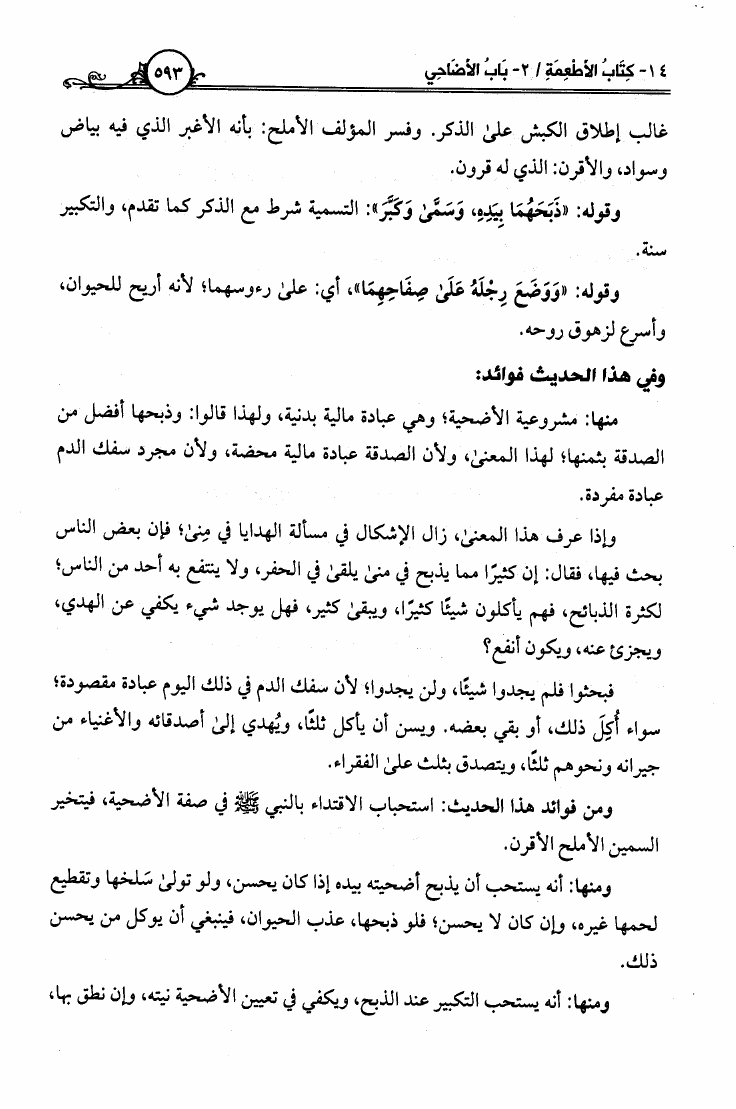 ١٤- كِتَابُ الأَطْعِمَةِ / ٢- بَابُ الأَضَاحِي
٥٩٣
غالب إطلاق الكبش علىٰ الذكر. وفسر المؤلف الأملح: بأنه الأغبر الذي فيه بياض
وسواد، والأقرن: الذي له قرون.
وقوله: «ذَبَحَهُمَا بِيَدِهِ، وَسَمَّىٰ وَكَبَّرَ»: التسمية شرط مع الذكر كما تقدم، والتكبير
سنة.
وقوله: «وَوَضَعَ رِجْلَهُ عَلَىٰ صِفَاحِهِمَا»، أي: علىٰ رءوسهما؛ لأنه أريح للحيوان،
وأسرع لزهوق روحه.
وفي هذا الحديث فوائد:
منها: مشروعية الأضحية؛ وهي عبادة مالية بدنية، ولهذا قالوا: وذبحها أفضل من
الصدقة بثمنها؛ لهذا المعنىٰ، ولأن الصدقة عبادة مالية محضة، ولأن مجرد سفك الدم
عبادة مفردة.
وإذا عرف هذا المعنىٰ، زال الإشكال في مسألة الهدايا في مِنىٰ؛ فإن بعض الناس
بحث فيها، فقال: إن كثيرًا مما يذبح في منىٰ يلقىٰ في الحفر، ولا ينتفع به أحد من الناس؛
لكثرة الذبائح، فهم يأكلون شيئًا كثيرًا، ويبقىٰ كثير، فهل يوجد شيء يكفي عن الهدي،
ويجزئ عنه، ويكون أنفع؟
فبحثوا فلم يجدوا شيئًا، ولن يجدوا؛ لأن سفك الدم في ذلك اليوم عبادة مقصودة؛
سواء أُكِلَ ذلك، أو بقي بعضه. ويسن أن يأكل ثلثًا، ويُهدي إلىٰ أصدقائه والأغنياء من
جيرانه ونحوهم ثلثًا، ويتصدق بثلث علىٰ الفقراء.
ومن فوائد هذا الحديث: استحباب الاقتداء بالنبي ﷺ في صفة الأضحية، فيتخير
السمين الأملح الأقرن.
ومنها: أنه يستحب أن يذبح أضحيته بيده إذا كان يحسن، ولو تولىٰ سَلخها وتقطيع
لحمها غيره، وإن كان لا يحسن؛ فلو ذبحها، عذب الحيوان، فينبغي أن يوكل من يحسن
ذلك.
ومنها: أنه يستحب التكبير عند الذبح، ويكفي في تعيين الأضحية نيته، وإن نطق بها،